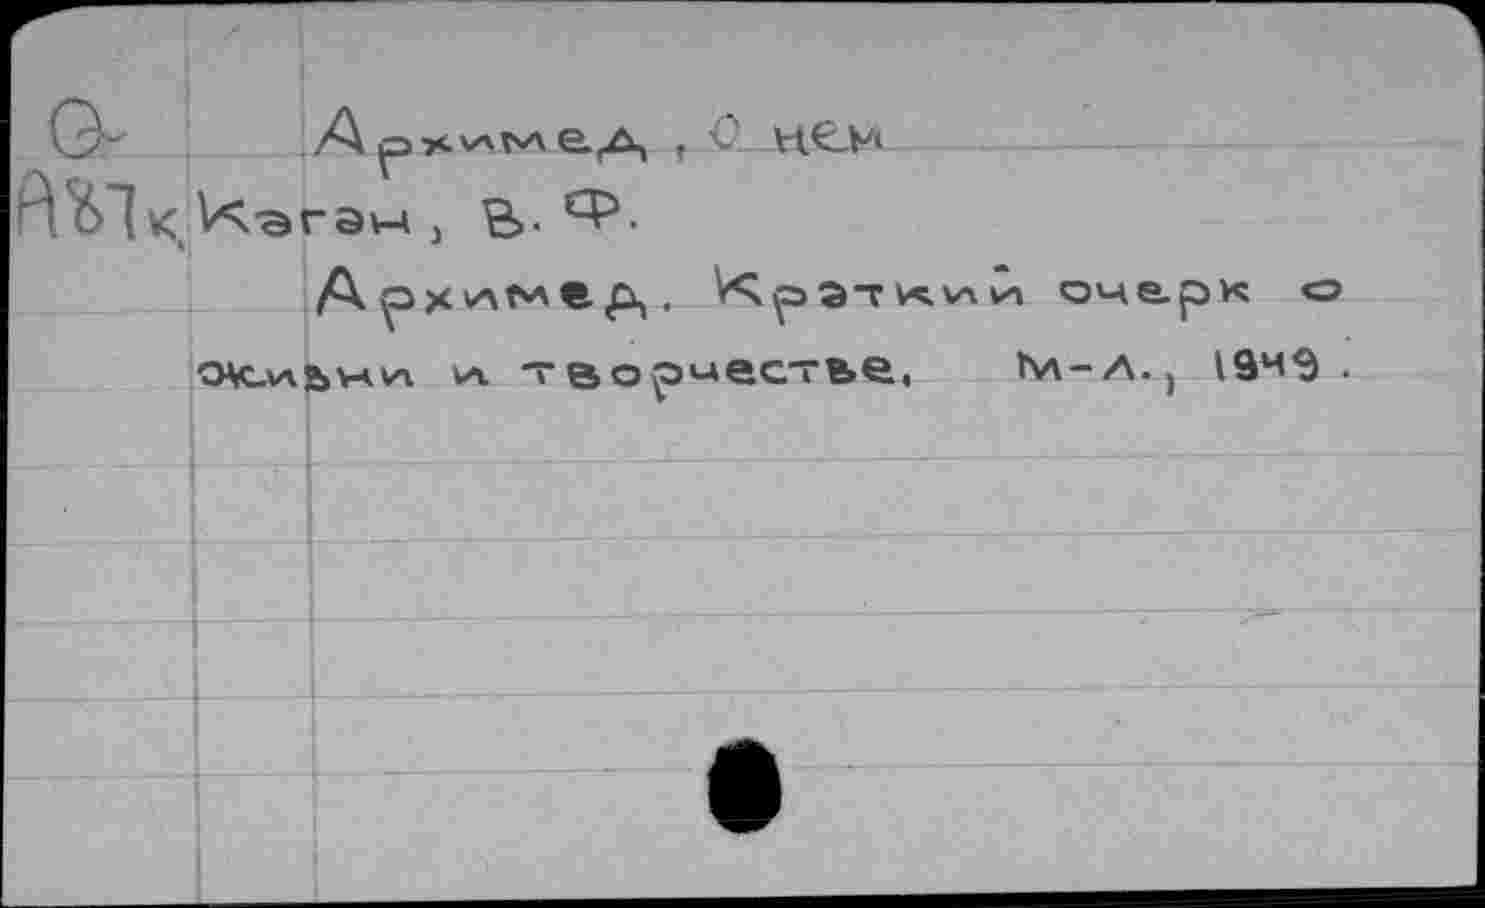 Архимед, О нем
Каган, В. Ф.
Архимед. Краткий очерк о
жизни и творчестве, М-Л., 1949.